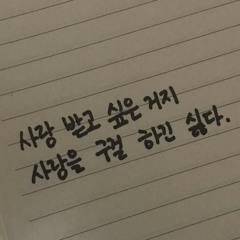 사랑 받고 싶은거지
사랑을 구걸 하긴 싫다.